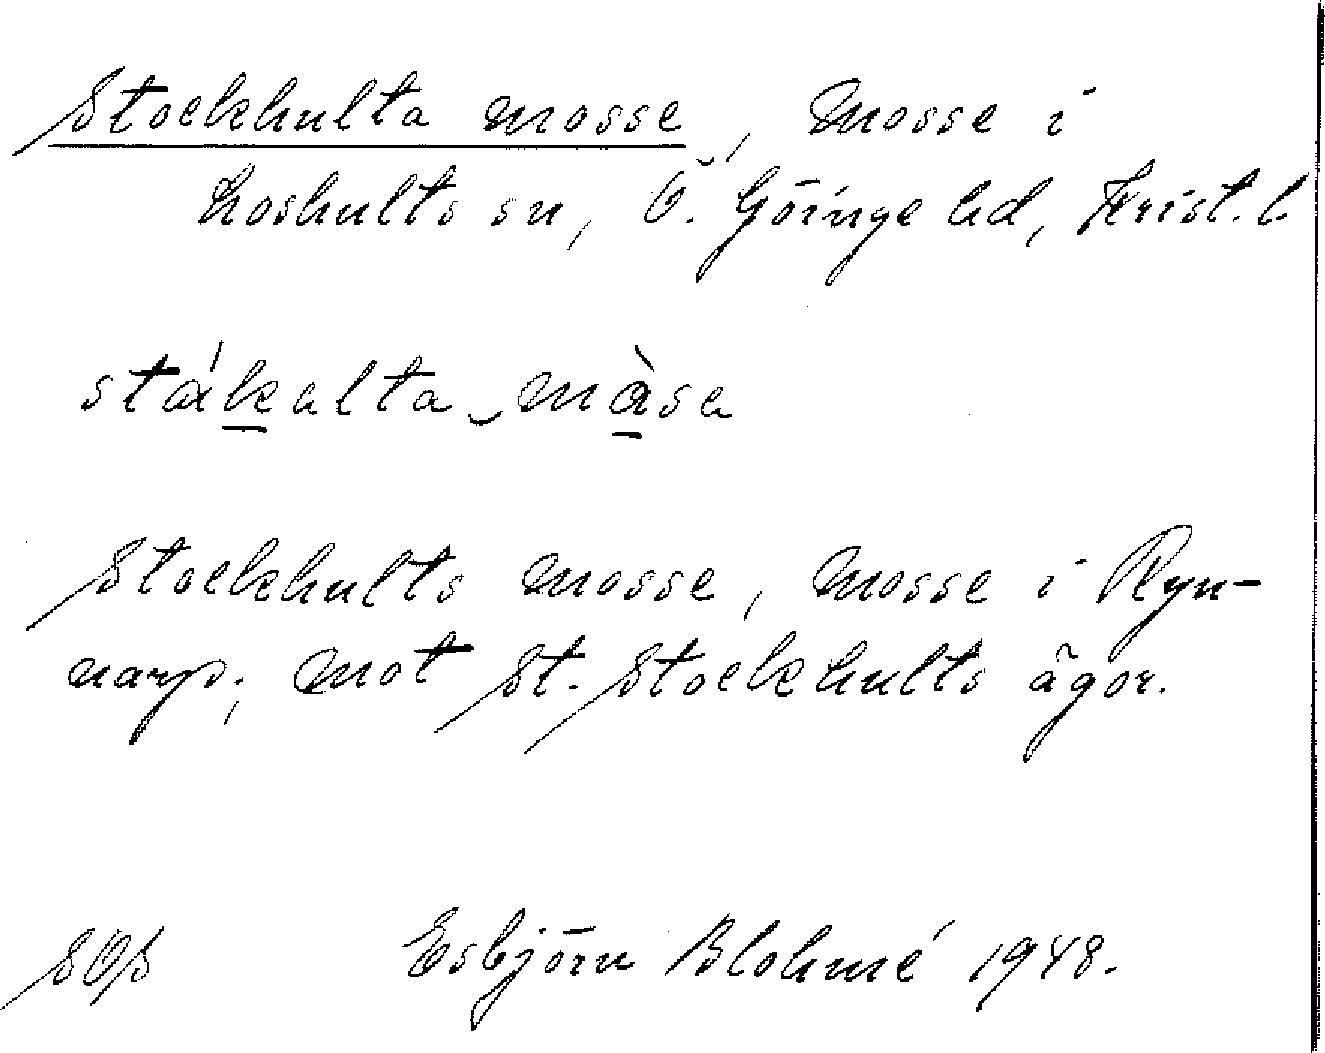 Stockhulta mosse, Mosse i
Loshults sn, Ö. Göinge hd, Krist. l.
stákalta‿màsa
Stockhults mosse, Mosse i Ryn-
narp; mot St. Stockhults ägor.
Esbjörn Blohmé 1948.